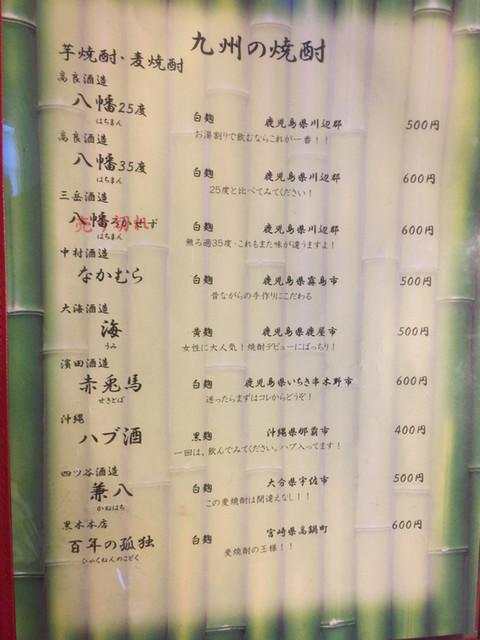 九州の焼酎
芋焼酎・麦焼酎
高良酒造
八幡25度 白麹 鹿児島県川辺郡 500円
はちまん お湯割りで飲むならこれが一番！！
高良酒造
八幡35度 白麹 鹿児島県川辺郡 600円
はちまん 25度と比べてみてください！
三岳酒造
八幡ろかせず 白麹 鹿児島県川辺郡 600円
売り切れ
はちまん 無ろ過35度・これもまた味が違うますよ！
中村酒造
なかむら 白麹 鹿児島県霧島市 500円
昔ながらの手作りにこだわる
大海酒造
海 黄麹 鹿児島県鹿屋市 500円
うみ 女性に大人気！焼酎デビューにばっちり！
濱田酒造
赤兎馬 白麹 鹿児島県いちき串木野市 600円
せきとば 迷ったらまずはコレからどうぞ！
沖縄
ハブ酒 黒麹 沖縄県那覇市 400円
一回は、飲んでみてください。ハブ入ってます！
四ツ谷酒造
兼八 白麹 大分県宇佐市 500円
かねはち この麦焼酎は間違えなし！！
黒木本店
百年の孤独 白麹 宮崎県高鍋町 600円
ひゃくねんのこどく 麦焼酎の王様！！